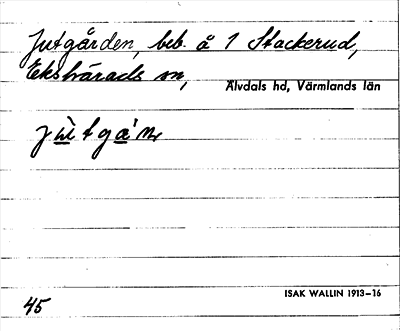 Jutgården, beb. å 1 Stackerud,
Ekshärads sn,
Älvdals hd, Värmlands län
jùtgán
ISAK WALLIN 1913–16
45